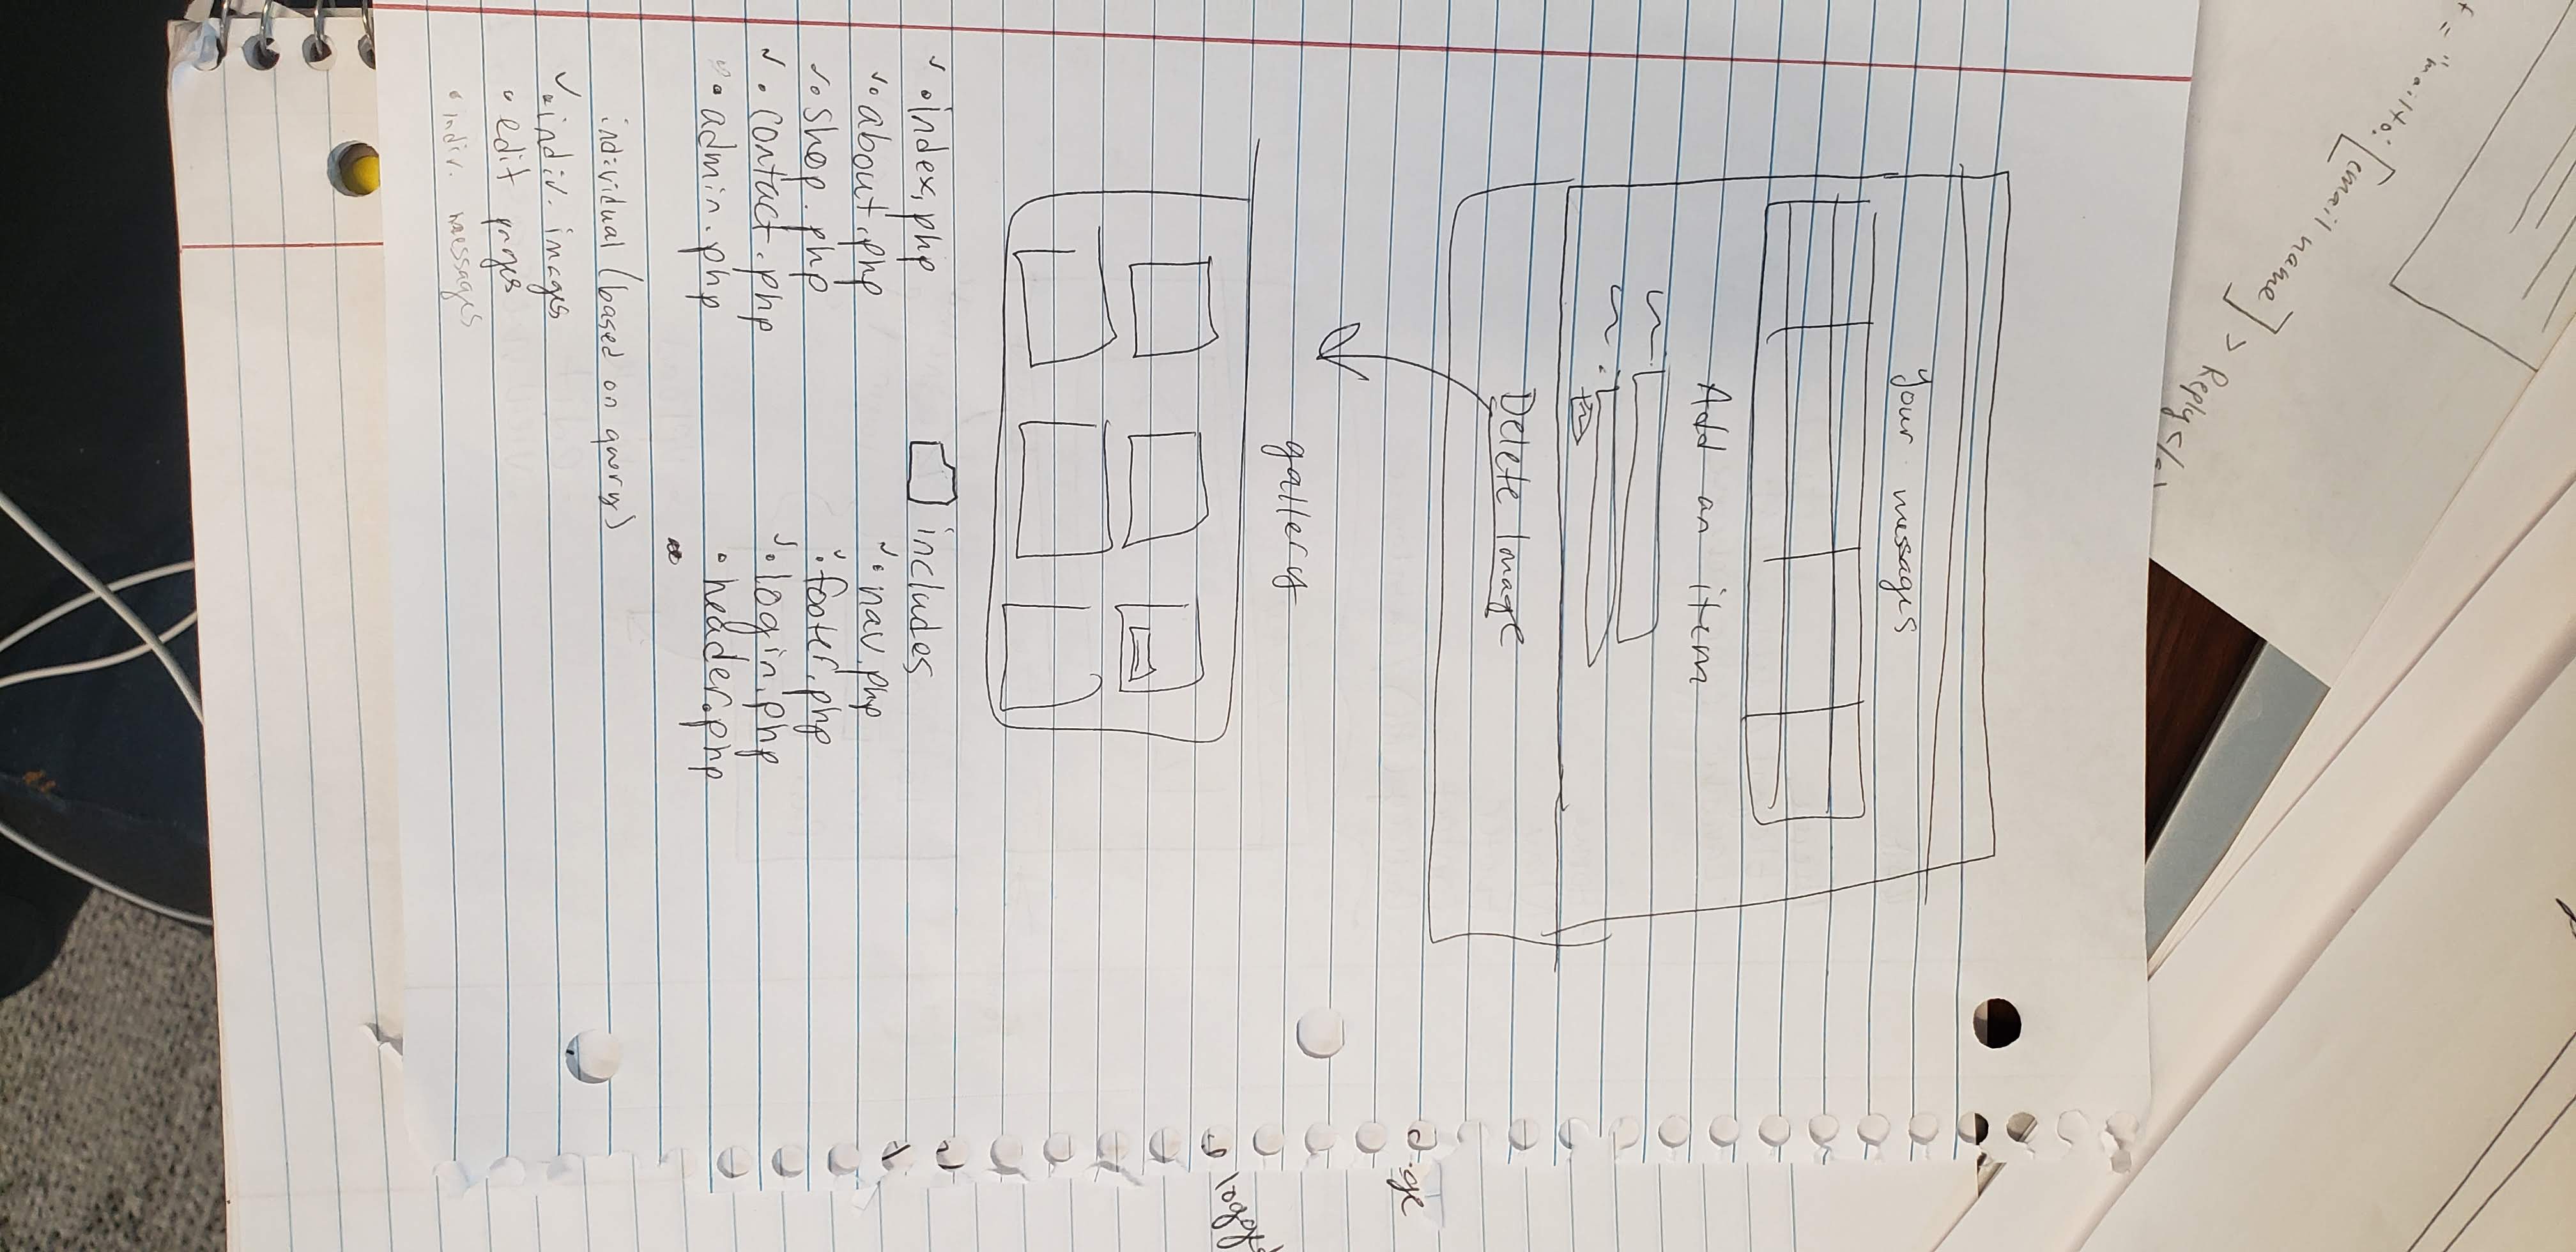 = "mailto: [email name] > Reply </a>
Your messages
Add an item
Delete Image
gallery
• index.php
• about.php
• shop.php
• contact.php
• admin.php
includes
• nav.php
• footer.php
• login.php
• header.php
individual (based on query)
• indiv. images
• edit pages
• indiv. messages